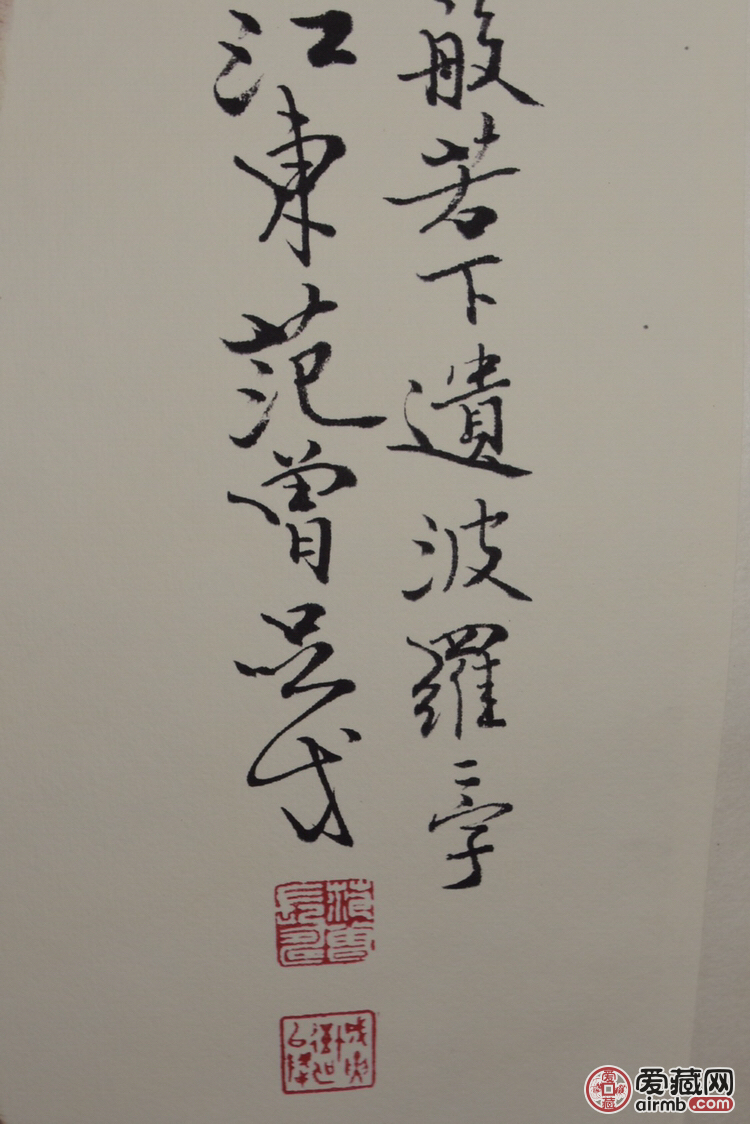 般若下遺波羅二字
江東范曾
爱藏网
airmb.com